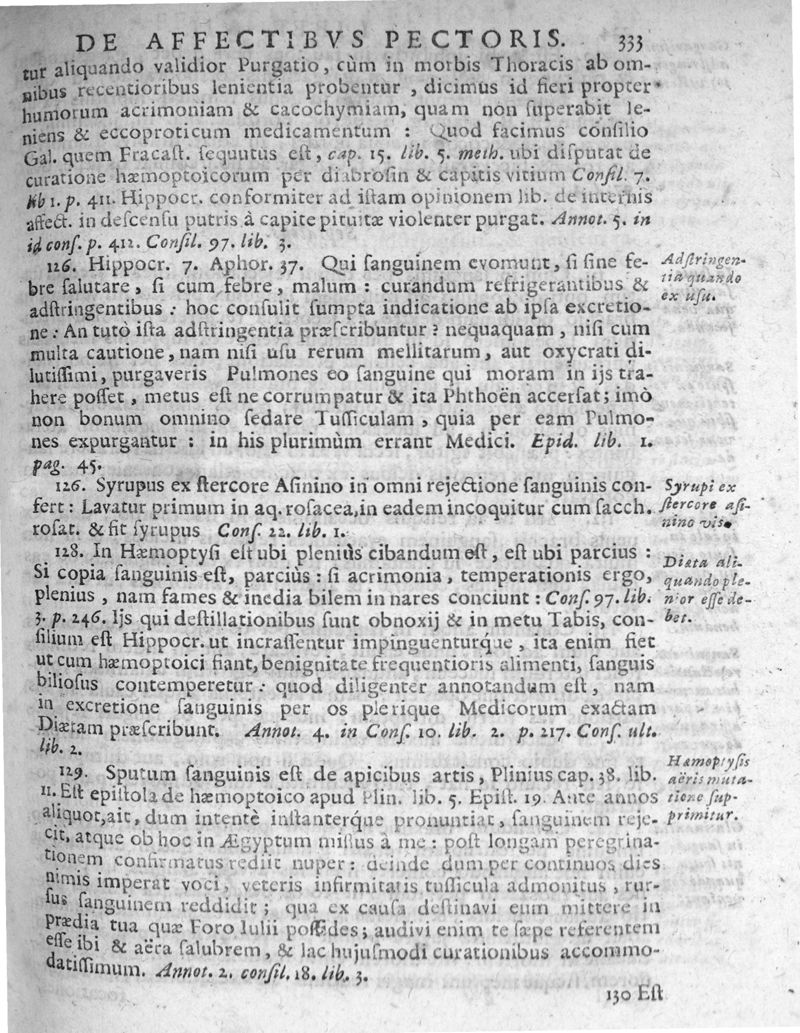 DE AFFECTIBVS PECTORIS. 333
tur aliquando validior Purgatio, cùm in morbis Thoracis ab om-
nibus recentioribus lenientia probentur, dicimus id fieri propter
humorum acrimoniam & cacochymiam, quam non ſuperabit le-
niens & eccoproticum medicamentum : Quod facimus conſilio
Gal. quem Fracaſt. ſequutus eſt, cap. 15. lib. 5. meth. ubi diſputat de
curatione hæmoptoicorum per diabroſin & capitis vitium Conſil. 7.
lib 1. p. 411. Hippocr. conformiter ad iſtam opinionem lib. de internis
affect. in deſcenſu putris à capite pituitæ violenter purgat. Annot. 5. in
id conſ. p. 412. Conſil. 97. lib. 3.
126. Hippocr. 7. Aphor. 37. Qui ſanguinem evomunt, ſi ſine fe-
bre ſalutare, ſi cum febre, malum : curandum refrigerantibus &
adſtringentibus : hoc conſulit ſumpta indicatione ab ipſa excretio-
ne : An tutò iſta adſtringentia præſcribuntur ? nequaquam, niſi cum
multa cautione, nam niſi uſu rerum mellitarum, aut oxycrati di-
lutiſſimi, purgaveris Pulmones eo ſanguine qui moram in ijs tra-
here poſſet, metus eſt ne corrumpatur & ita Phthoën accerſat; imò
non bonum omnino ſedare Tuſſiculam, quia per eam Pulmo-
nes expurgantur : in his plurimùm errant Medici. Epid. lib. 1.
pag. 45.
Adſtringen-
tia quando
ex uſu.
126. Syrupus ex ſtercore Aſinino in omni rejectione ſanguinis con-
fert : Lavatur primum in aq. roſacea, in eadem incoquitur cum ſacch.
roſat. & fit ſyrupus Conſ. 22. lib. 1.
Syrupi ex
ſtercore aſi-
nino vis.
128. In Hæmoptyſi eſt ubi pleniùs cibandum eſt, eſt ubi parcius :
Si copia ſanguinis eſt, parciùs : ſi acrimonia, temperationis ergo,
plenius, nam fames & inedia bilem in nares conciunt : Conſ. 97. lib.
3. p. 246. Ijs qui deſtillationibus ſunt obnoxij & in metu Tabis, con-
ſilium eſt Hippocr. ut incraſſentur impinguenturq́ue, ita enim fiet
ut cum hæmoptoici fiant, benignitate frequentioris alimenti, ſanguis
bilioſus contemperetur : quod diligenter annotandum eſt, nam
in excretione ſanguinis per os plerique Medicorum exactam
Diætam præſcribunt. Annot. 4. in Conſ. 10. lib. 2. p. 217. Conſ. ult.
lib. 2.
Diæta ali-
quando ple-
nior eſſe de-
bet.
129. Sputum ſanguinis eſt de apicibus artis, Plinius cap. 38. lib.
11. Eſt epiſtola de hæmoptoico apud Plin. lib. 5. Epiſt. 19. Ante annos
aliquot, ait, dum intentè inſtanterq́ue pronuntiat, ſanguinem reje-
cit, atque ob hoc in Ægyptum miſſus à me : poſt longam peregrina-
tionem confirmatus rediit nuper : deinde dum per continuos dies
nimis imperat voci, veteris infirmitatis tuſſicula admonitus, rur-
ſus ſanguinem reddidit; qua ex cauſa deſtinavi eum mittere in
Prædia tua quæ Foro Iulii poſſides; audivi enim te ſæpe referentem
eſſe ibi & aëra ſalubrem, & lac hujuſmodi curationibus accommo-
datiſſimum. Annot. 2. conſil. 18. lib. 3.
Hæmoptyſis
aëris muta-
tione ſup-
primitur.
130 Eſt